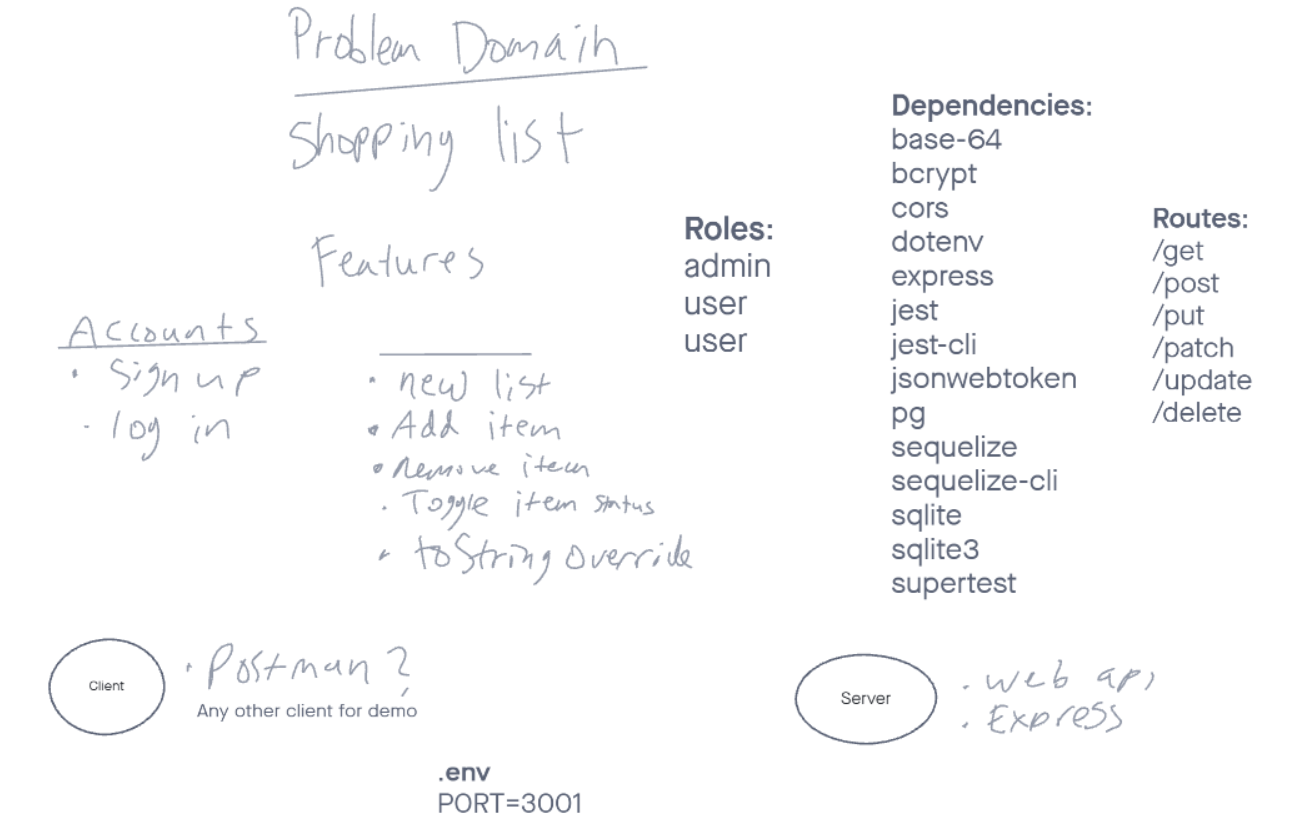 Problem Domain
Shopping list
Features
Accounts
• Sign up
• log in
• new list
• Add item
• Remove item
• Toggle item status
• toString override
Roles:
admin
user
user
Dependencies:
base-64
bcrypt
cors
dotenv
express
jest
jest-cli
jsonwebtoken
pg
sequelize
sequelize-cli
sqlite
sqlite3
supertest
Routes:
/get
/post
/put
/patch
/update
/delete
Client
• Postman?
Any other client for demo
Server
• web api
• Express
.env
PORT=3001